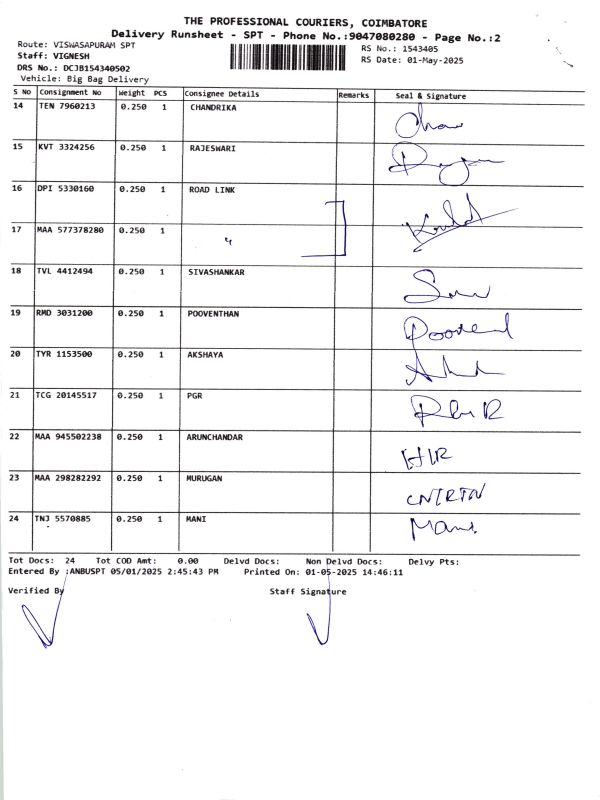 THE PROFESSIONAL COURIERS, COIMBATORE
Delivery Runsheet - SPT - Phone No.:9047080280 - Page No.:2
Route: VISWASAPURAM SPT
Staff: VIGNESH
DRS No.: DCJB154340502
Vehicle: Big Bag Delivery
RS No.: 1543405
RS Date: 01-May-2025
S No Consignment No Weight PCS Consignee Details Remarks Seal & Signature
14 TEN 7960213 0.250 1 CHANDRIKA
15 KVT 3324256 0.250 1 RAJESWARI
16 DPI 5330160 0.250 1 ROAD LINK
17 MAA 577378280 0.250 1 "
18 TVL 4412494 0.250 1 SIVASHANKAR
19 RMD 3031200 0.250 1 POOVENTHAN
20 TYR 1153500 0.250 1 AKSHAYA
21 TCG 20145517 0.250 1 PGR
22 MAA 945502238 0.250 1 ARUNCHANDAR
23 MAA 298282292 0.250 1 MURUGAN
24 TNJ 5570885 0.250 1 MANI Mani
Tot Docs: 24 Tot COD Amt: 0.00 Delvd Docs: Non Delvd Docs: Delvy Pts:
Entered By :ANBUSPT 05/01/2025 2:45:43 PM Printed On: 01-05-2025 14:46:11
Verified By Staff Signature